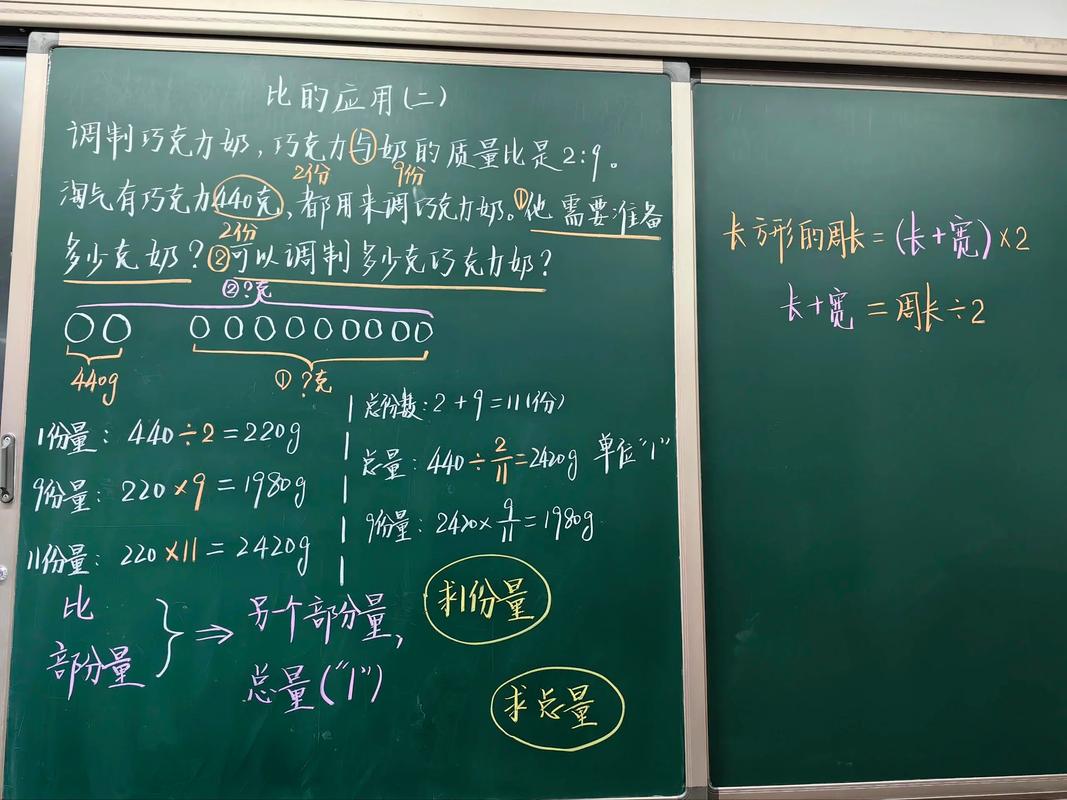 比的应用(二)
调制巧克力奶,巧克力与奶的质量比是2:9。
2份 9份
淘气有巧克力440克,都用来调巧克力奶。①他需要准备
2份
多少克奶?②可以调制多少克巧克力奶?
②?克
440g ①?克
1份量: 440÷2=220g
9份量: 220×9=1980g
11份量: 220×11=2420g
总份数:2+9=11(份)
总量:440÷2/11=2420g 单位"1"
9份量:2420×9/11=1980g
比
部分量
⇒ 另个部分量,
总量("1")
求1份量
求总量
长方形的周长=(长+宽)×2
长+宽=周长÷2